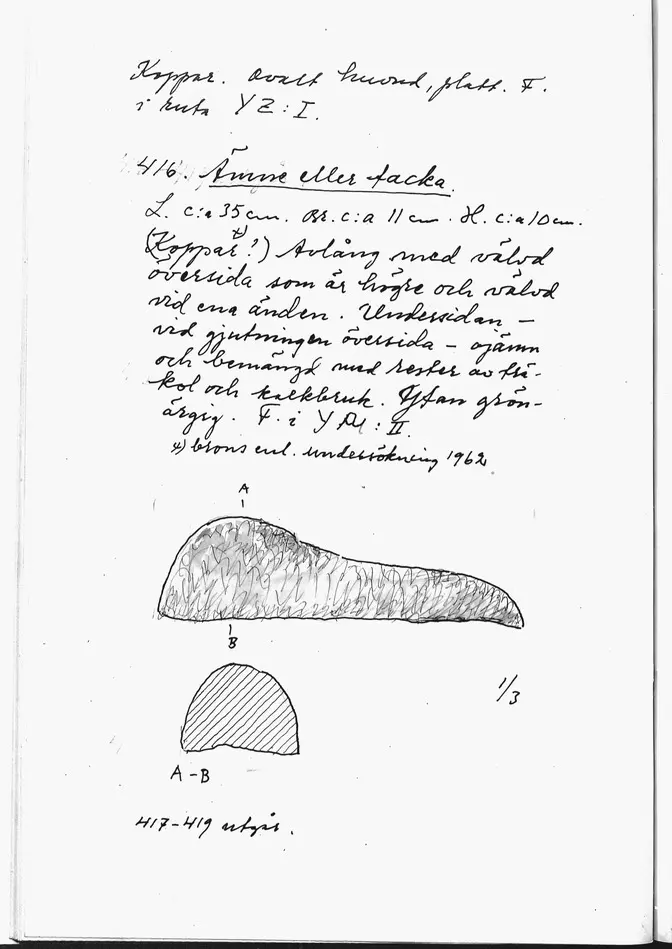 Koppar. Ovalt huvud, platt. F.
i ruta YZ:I.
416. Ämne eller tacka.
L. c:a 35 cm. Br. c:a 11 cm. H. c:a 10 cm.
(Koppar x) ?) Avlång med välvd
översida som är högre och välvd
vid ena änden. Undersidan –
vid gjutningen översida – ojämn
och bemängd med rester av trä-
kol och kalkbruk. Ytan grön-
ärgig. F. i YÅ:II.
x) brons enl. undersökning 1962
A
B
1/3
A-B
417-419 utgår.